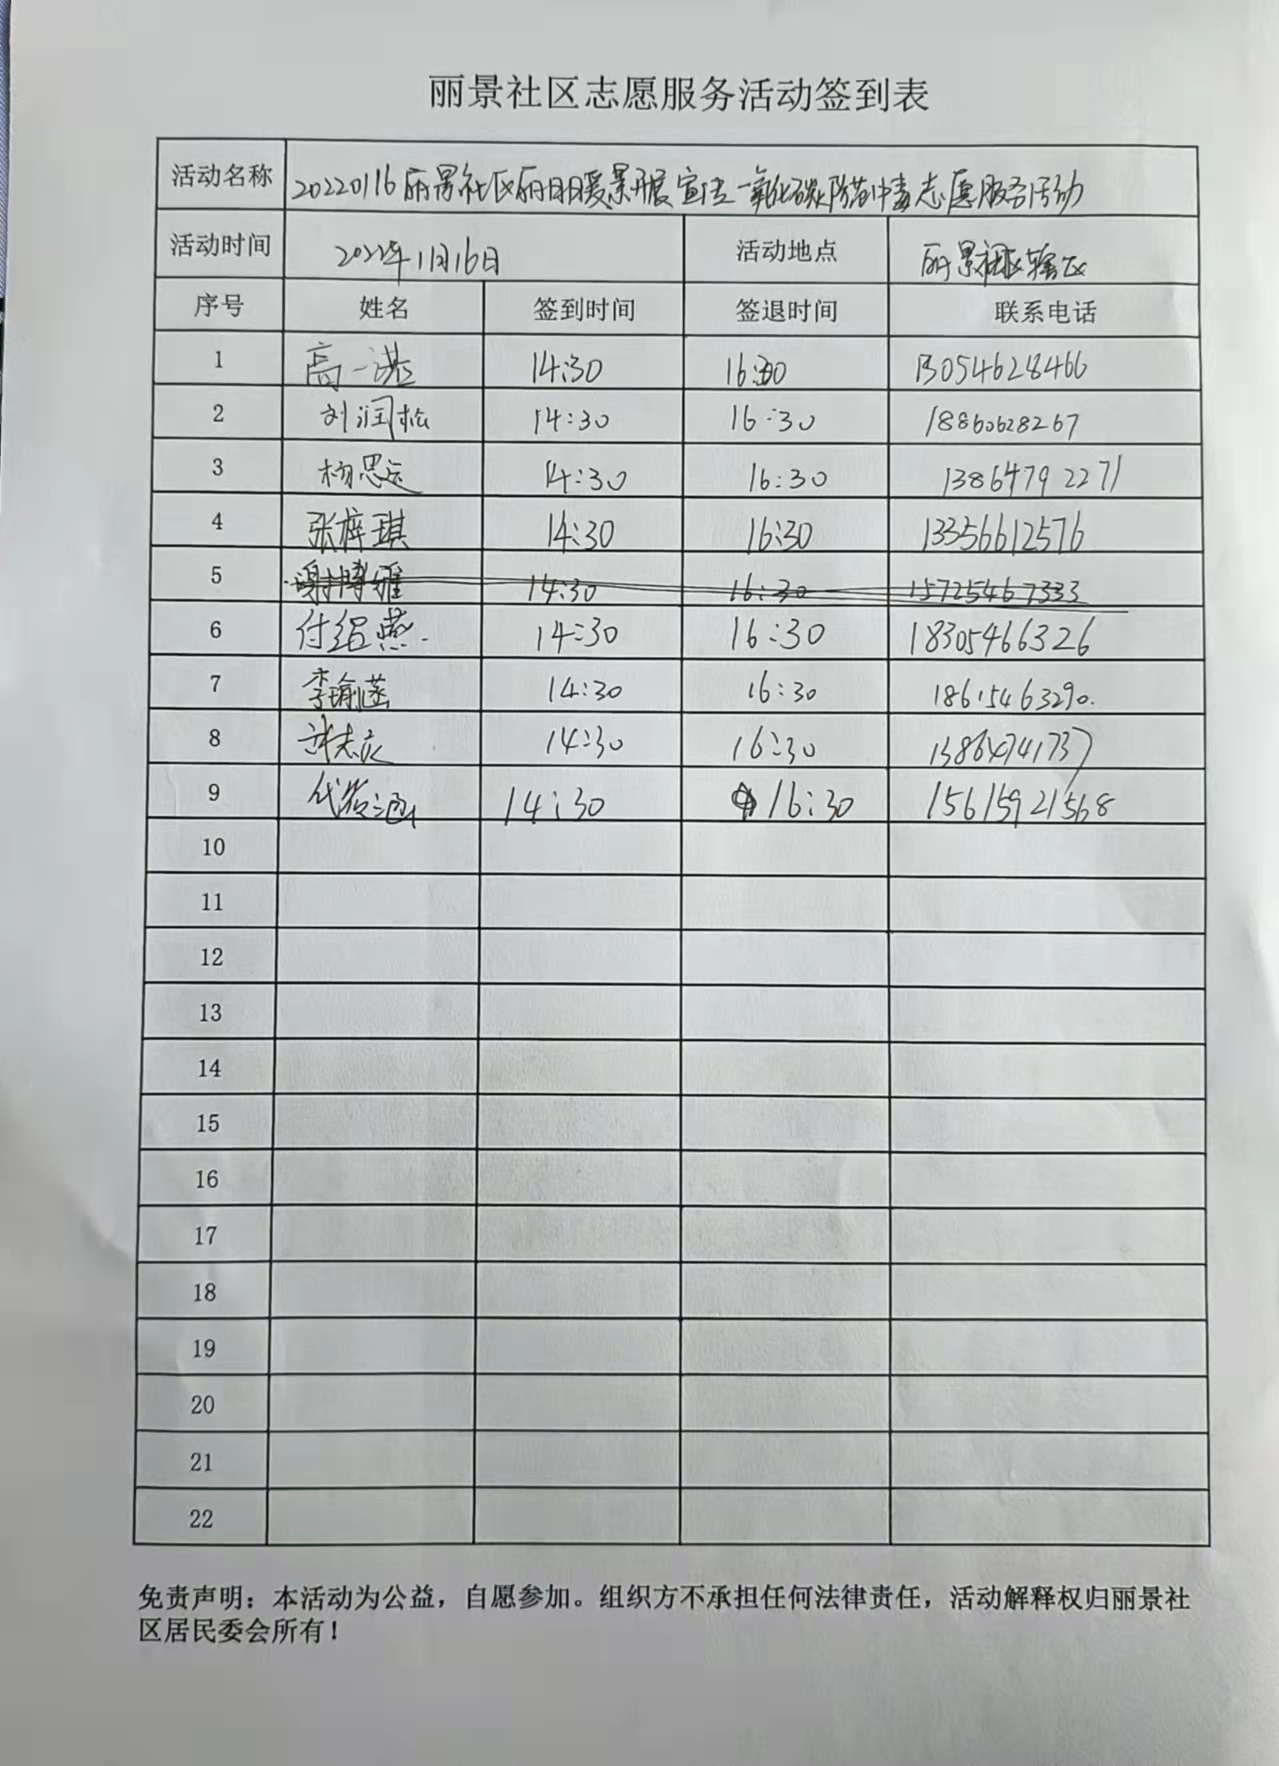 丽景社区志愿服务活动签到表
活动名称 20220116丽景社区丽日暖景开展宣传一氧化碳防范中毒志愿服务活动
活动时间 2022年1月16日 活动地点 丽景社区辖区
序号 姓名 签到时间 签退时间 联系电话
1 高一 14:30 16:30 13054628466
2 刘润松 14:30 16:30 18860628267
3 杨思运 14:30 16:30 13864792271
4 张梓琪 14:30 16:30 13356612576
5 谢博雅 14:30 16:30 15725467333
6 付绍燕 14:30 16:30 18305466326
7 李瑜涵 14:30 16:30 18615463290.
8 14:30 16:30 13864741737
9 14:30 16:30 15615921568
10
11
12
13
14
15
16
17
18
19
20
21
22
免责声明：本活动为公益，自愿参加。组织方不承担任何法律责任，活动解释权归丽景社
区居民委会所有！